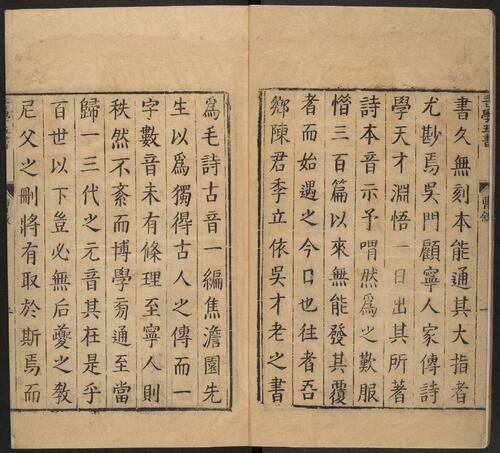 音學五書
書久無刻本能通其大指者
尤尠焉吳門顧寧人家傳詩
學天才淵悟一日出其所著
詩本音示予喟然爲之歎服
憯三百篇以來無能發其覆
者而始遇之今日也往者吾
鄉陳君季立依吳才老之書
爲毛詩古音一編焦澹園先
生以爲獨得古人之傳而一
字數音未有條理至寧人則
秩然不紊而博學旁通至當
歸一三代之元音其在是乎
百世以下豈必無后夔之教
尼父之刪將有取於斯焉而